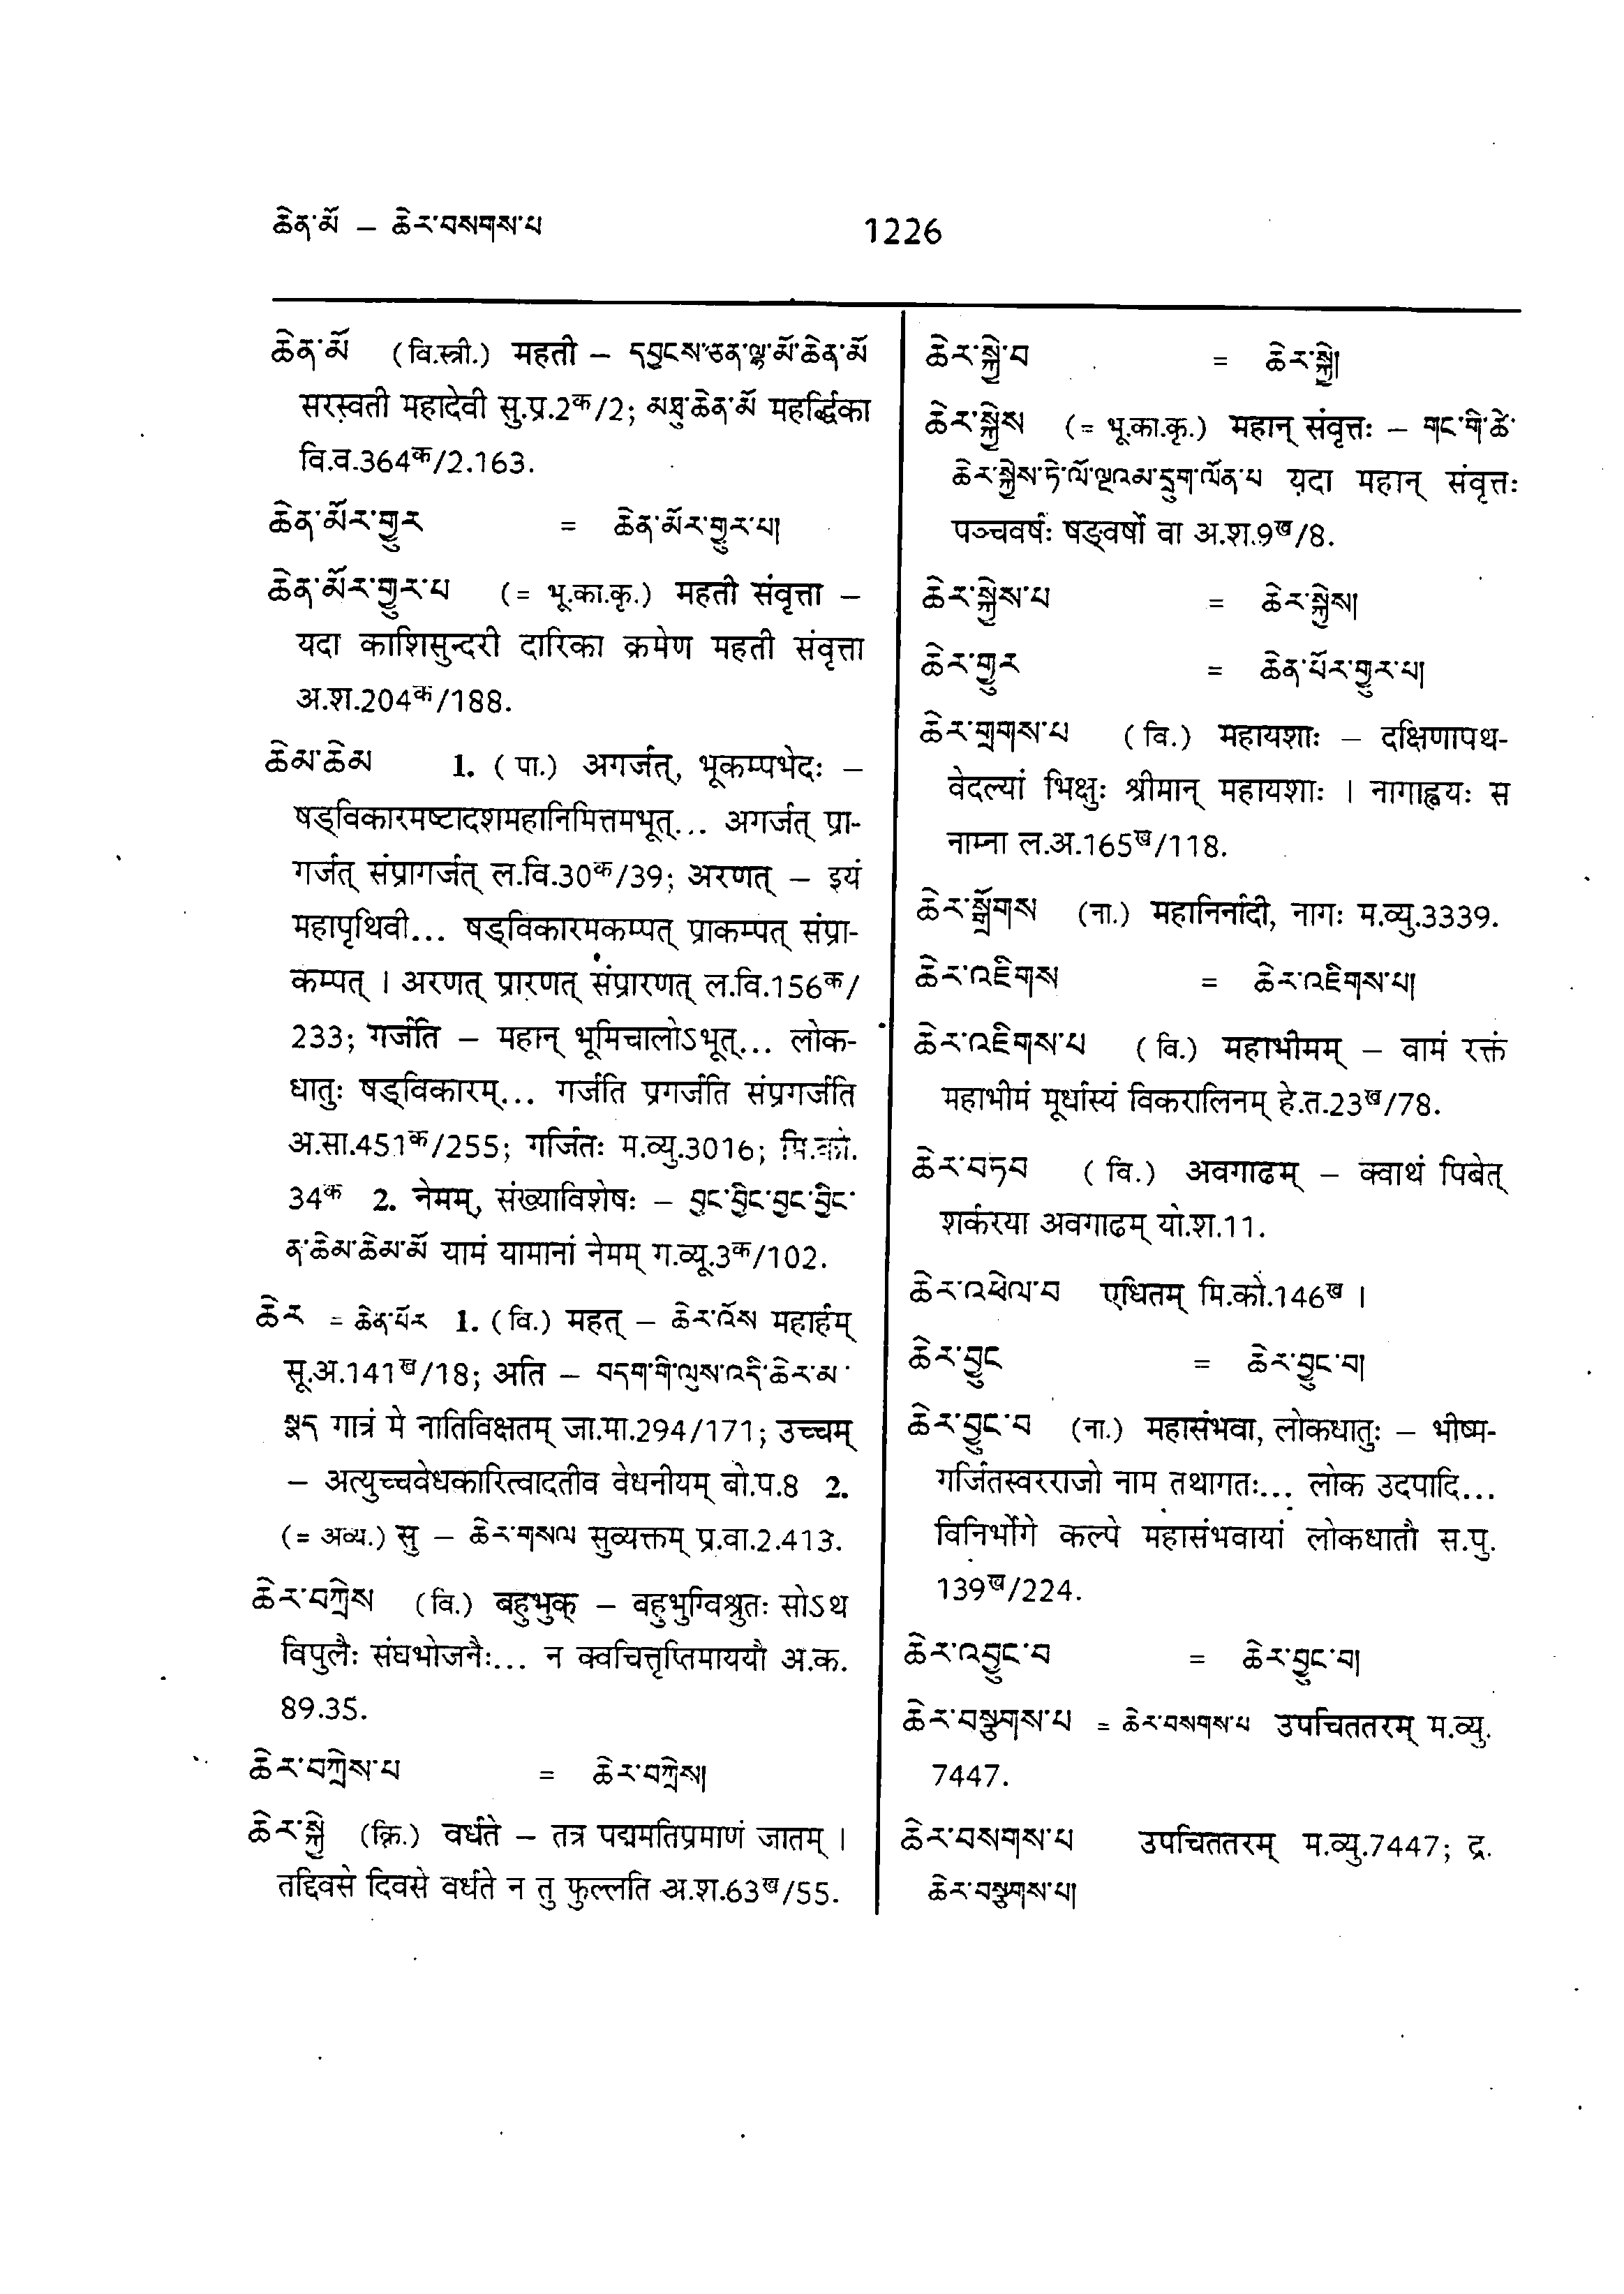 ཆེན་མོ – ཆེར་བསགས་པ 1226
ཆེན་མོ (वि.स्त्री.) महती – དབྱངས་ཅན་ལྷ་མོ་ཆེན་མོ
सरस्वती महादेवी सु.प्र.2क/2; མཐུ་ཆེན་མོ महर्द्धिका
वि.व.364क/2.163.
ཆེན་མོར་གྱུར = ཆེན་མོར་གྱུར་པ།
ཆེན་མོར་གྱུར་པ (= भू.का.कृ.) महती संवृत्ता –
यदा काशिसुन्दरी दारिका क्रमेण महती संवृत्ता
अ.श.204क/188.
ཆེམ་ཆེམ 1. (पा.) अगर्जत्, भूकम्पभेदः –
षड्विकारमष्टादशमहानिमित्तमभूत्... अगर्जत् प्रा-
गर्जत् संप्रागर्जत् ल.वि.30क/39; अरणत् – इयं
महापृथिवी... षड्विकारमकम्पत् प्राकम्पत् संप्रा-
कम्पत् । अरणत् प्रारणत् संप्रारणत् ल.वि.156क/
233; गर्जति – महान् भूमिचालोऽभूत्... लोक-
धातुः षड्विकारम्... गर्जति प्रगर्जति संप्रगर्जति
अ.सा.451क/255; गर्जितः म.व्यु.3016; मि.को.
34क 2. नेमम्, संख्याविशेषः – བྱང་བྱིང་བྱང་བྱིང་
ན་ཆེམ་ཆེམ་མོ यामं यामानां नेमम् ग.व्यू.3क/102.
ཆེར = ཆེན་པོར 1. (वि.) महत् – ཆེར་འོས महार्हम्
सू.अ.141ख/18; अति – བདག་གི་ལུས་འདི་ཆེར་མ་
སྨད गात्रं मे नातिविक्षतम् जा.मा.294/171; उच्चम्
– अत्युच्चवेधकारित्वादतीव वेधनीयम् बो.प.8 2.
(= अव्य.) सु – ཆེར་གསལ सुव्यक्तम् प्र.वा.2.413.
ཆེར་བཀྲེས (वि.) बहुभुक् – बहुभुग्विश्रुतः सोऽथ
विपुलैः संघभोजनैः... न क्वचित्तृप्तिमाययौ अ.क.
89.35.
ཆེར་བཀྲེས་པ = ཆེར་བཀྲེས།
ཆེར་སྐྱེ (क्रि.) वर्धते – तत्र पद्ममतिप्रमाणं जातम् ।
तद्दिवसे दिवसे वर्धते न तु फुल्लति अ.श.63ख/55.
ཆེར་སྐྱེ་བ = ཆེར་སྐྱེ།
ཆེར་སྐྱེས (= भू.का.कृ.) महान् संवृत्तः – གང་གི་ཚེ་
ཆེར་སྐྱེས་ཏེ་ལོ་ལྔའམ་དྲུག་ལོན་པ यदा महान् संवृत्तः
पञ्चवर्षः षड्वर्षो वा अ.श.9ख/8.
ཆེར་སྐྱེས་པ = ཆེར་སྐྱེས།
ཆེར་གྱུར = ཆེན་པོར་གྱུར་པ།
ཆེར་གྲགས་པ (वि.) महायशाः – दक्षिणापथ-
वेदल्यां भिक्षुः श्रीमान् महायशाः । नागाह्वयः स
नाम्ना ल.अ.165ख/118.
ཆེར་སྒྲོགས (ना.) महानिर्नादी, नागः म.व्यु.3339.
ཆེར་འཇིགས = ཆེར་འཇིགས་པ།
ཆེར་འཇིགས་པ (वि.) महाभीमम् – वामं रक्तं
महाभीमं मूर्धास्यं विकरालिनम् हे.त.23ख/78.
ཆེར་བཏབ (वि.) अवगाढम् – क्वाथं पिबेत्
शर्करया अवगाढम् यो.श.11.
ཆེར་འཕེལ་བ एधितम् मि.को.146ख ।
ཆེར་བྱུང = ཆེར་བྱུང་བ།
ཆེར་བྱུང་བ (ना.) महासंभवा, लोकधातुः – भीष्म-
गर्जितस्वरराजो नाम तथागतः... लोक उदपादि...
विनिर्भोगे कल्पे महासंभवायां लोकधातौ स.पु.
139ख/224.
ཆེར་འབྱུང་བ = ཆེར་བྱུང་བ།
ཆེར་བསྩགས་པ = ཆེར་བསགས་པ उपचिततरम् म.व्यु.
7447.
ཆེར་བསགས་པ उपचिततरम् म.व्यु.7447; द्र.
ཆེར་བསྩགས་པ།